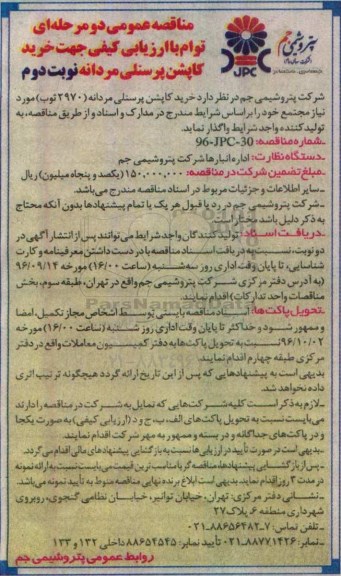 مناقصه عمومی دو مرحله‌ای
توام با ارزیابی کیفی جهت خرید
کاپشن پرسنلی مردانه نوبت دوم
پتروشیمی جم
JPC
شرکت پتروشیمی جم در نظر دارد خرید کاپشن پرسنلی مردانه (۲۹۷۰ ثوب) مورد
نیاز مجتمع خود را بر اساس شرایط مندرج در مدارک و اسناد و از طریق مناقصه، به
تولیدکننده واجد شرایط واگذار نماید.
ـ شماره مناقصه: 96-JPC-30
ـ دستگاه نظارت: اداره انبارها شرکت پتروشیمی جم
ـ مبلغ تضمین شرکت در مناقصه: ۱۵۰,۰۰۰,۰۰۰ (یکصد و پنجاه میلیون) ریال
ـ سایر اطلاعات و جزئیات مربوط در اسناد مناقصه مندرج می‌باشد.
ـ شرکت پتروشیمی جم در رد یا قبول هر یک یا تمام پیشنهادها بدون آنکه محتاج
به ذکر دلیل باشد مختار است.
ـ دریافت اسناد: تولیدکنندگان واجد شرایط می‌توانند پس از انتشار آگهی در
دو نوبت، نسبت به دریافت اسناد مناقصه با در دست داشتن معرفینامه و کارت
شناسایی، تا پایان وقت اداری روز سه‌شنبه (ساعت ۱۶/۰۰) مورخه ۹۶/۰۹/۱۴
(به آدرس دفتر مرکزی شرکت پتروشیمی جم واقع در تهران، طبقه سوم، بخش
مناقصات واحد تدارکات) اقدام نمایند.
ـ تحویل پاکت‌ها: اسناد مناقصه بایستی توسط اشخاص مجاز تکمیل، امضا
و ممهور شود و حداکثر تا پایان وقت اداری روز شنبه (ساعت ۱۶/۰۰) مورخه
۹۶/۱۰/۰۲ نسبت به تحویل پاکت‌ها به دفتر کمیسیون معاملات واقع در دفتر
مرکزی طبقه چهارم اقدام نمایند.
بدیهی است به پیشنهادهایی که پس از این تاریخ ارائه گردد هیچگونه ترتیب اثری
داده نخواهد شد.
ـ لازم به ذکر است کلیه شرکت‌هایی که تمایل به شرکت در مناقصه را دارند
می‌بایست نسبت به تحویل پاکت‌های الف، ب، ج و د (ارزیابی کیفی) به صورت یکجا
و در پاکت‌های جداگانه و در بسته و ممهور به مهر شرکت اقدام نمایند.
ـ بدیهی است در صورت تأیید در ارزیابی‌ها نسبت به بازگشایی پیشنهادهای مالی اقدام می‌گردد.
ـ پس از بازگشایی پیشنهادها، مناقصه‌گر با مناسب‌ترین قیمت می‌بایست نسبت به ارائه نمونه
در مدت ۳ روز اقدام نماید. بدیهی است ابلاغ برنده نهایی مناقصه منوط به تأیید نمونه می‌باشد.
ـ نشانی دفتر مرکزی: تهران، خیابان توانیر، خیابان نظامی گنجوی، روبروی
شهرداری منطقه ۶، پلاک ۲۷
ـ تلفن تماس: ۷-۰۲۱-۸۸۶۵۶۴۸۲
ـ نمابر: ۰۲۱-۸۸۷۷۱۴۲۶ تأیید نمابر: ۸۸۶۵۴۵۴۵ داخلی ۱۳۲ و ۱۳۳
روابط عمومی پتروشیمی جم